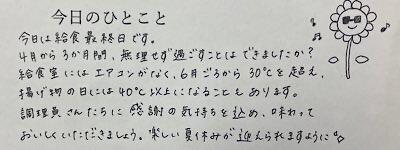 今日のひとこと
今日は給食最終日です。
4月から3か月間、無理せず過ごすことはできましたか?
給食室にはエアコンがなく、6月ごろから30℃を超え、
揚げ物の日には40℃以上になることもあります。
調理員さんたちに感謝の気持ちを込め、味わって
おいしくいただきましょう。楽しい夏休みが迎えられますように♪